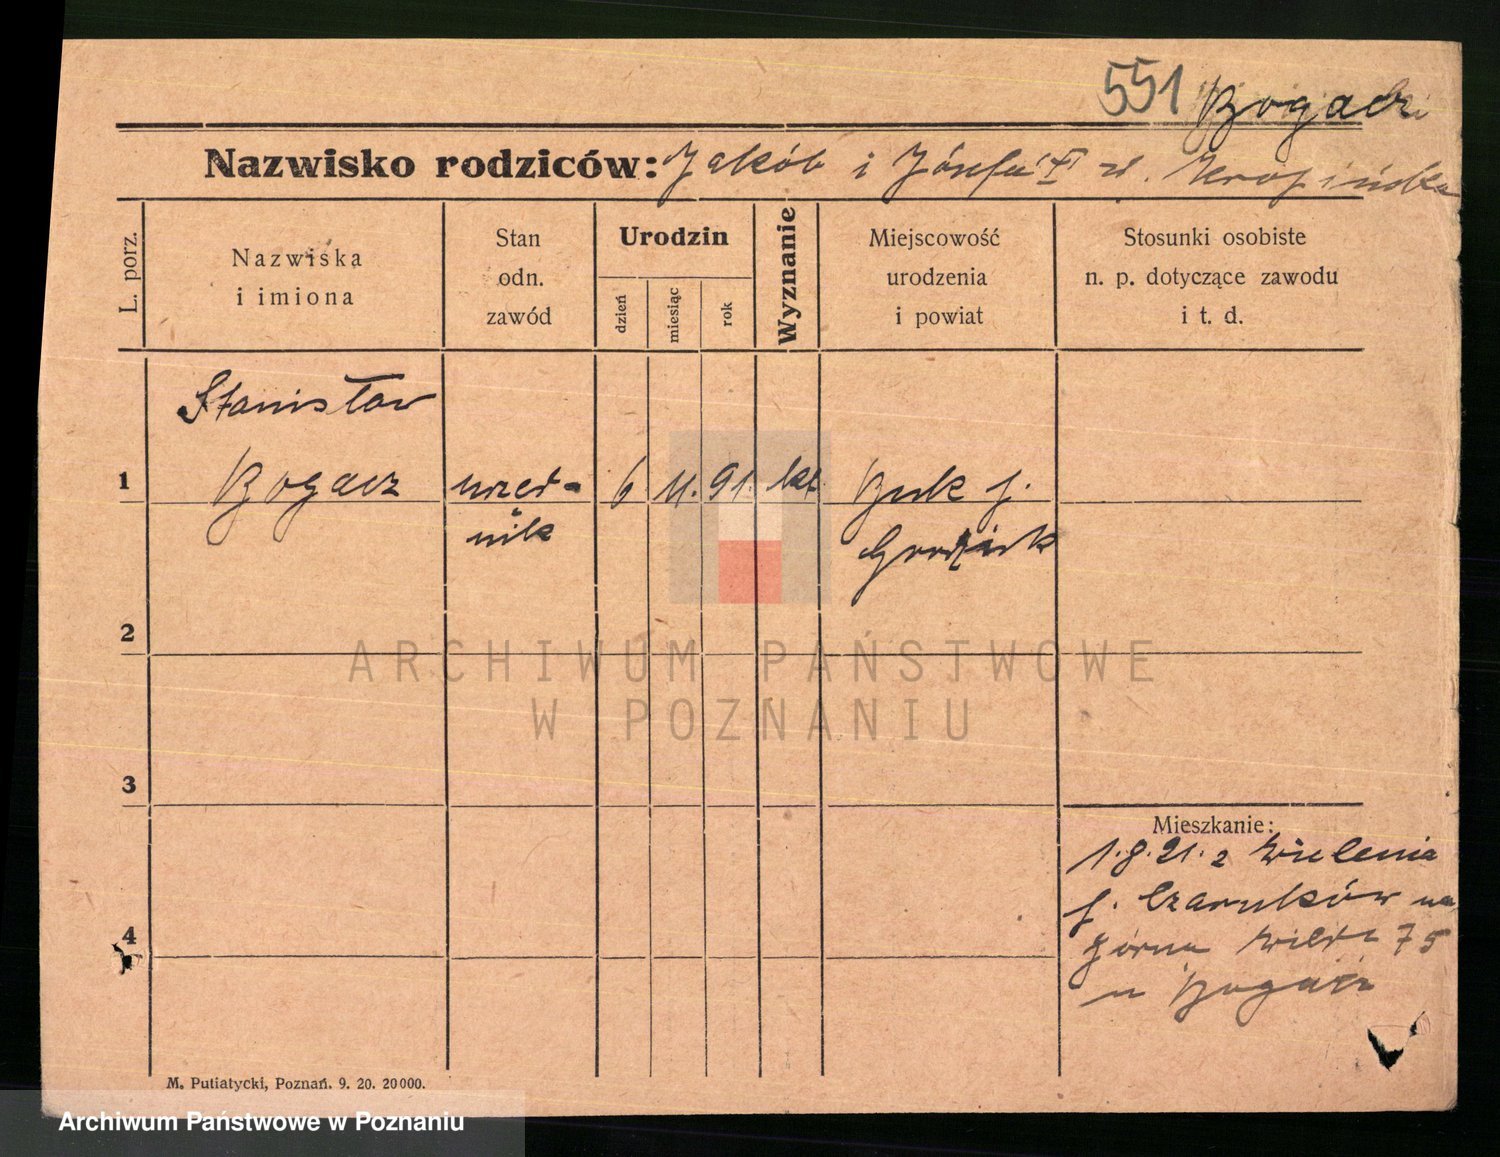 551 Bogacz
Nazwisko rodziców: Jakób i Józefa
L. porz.
Nazwiska
i imiona
Stan
odn.
zawód
Urodzin
dzień
miesiąc
rok
Wyznanie
Miejscowość
urodzenia
i powiat
Stosunki osobiste
n. p. dotyczące zawodu
i t. d.
Stanisław
1 Bogacz urzęd- 6 11. 91. kat. Buk p.
nik Grodzisk
2
ARCHIWUM PAŃSTWOWE
W POZNANIU
3
Mieszkanie:
1.8.21. z Wielenia
p. Czarnków na
Górna Wilda 75
u Bogacz
4
M. Putiatycki, Poznań. 9. 20. 20000.
Archiwum Państwowe w Poznaniu